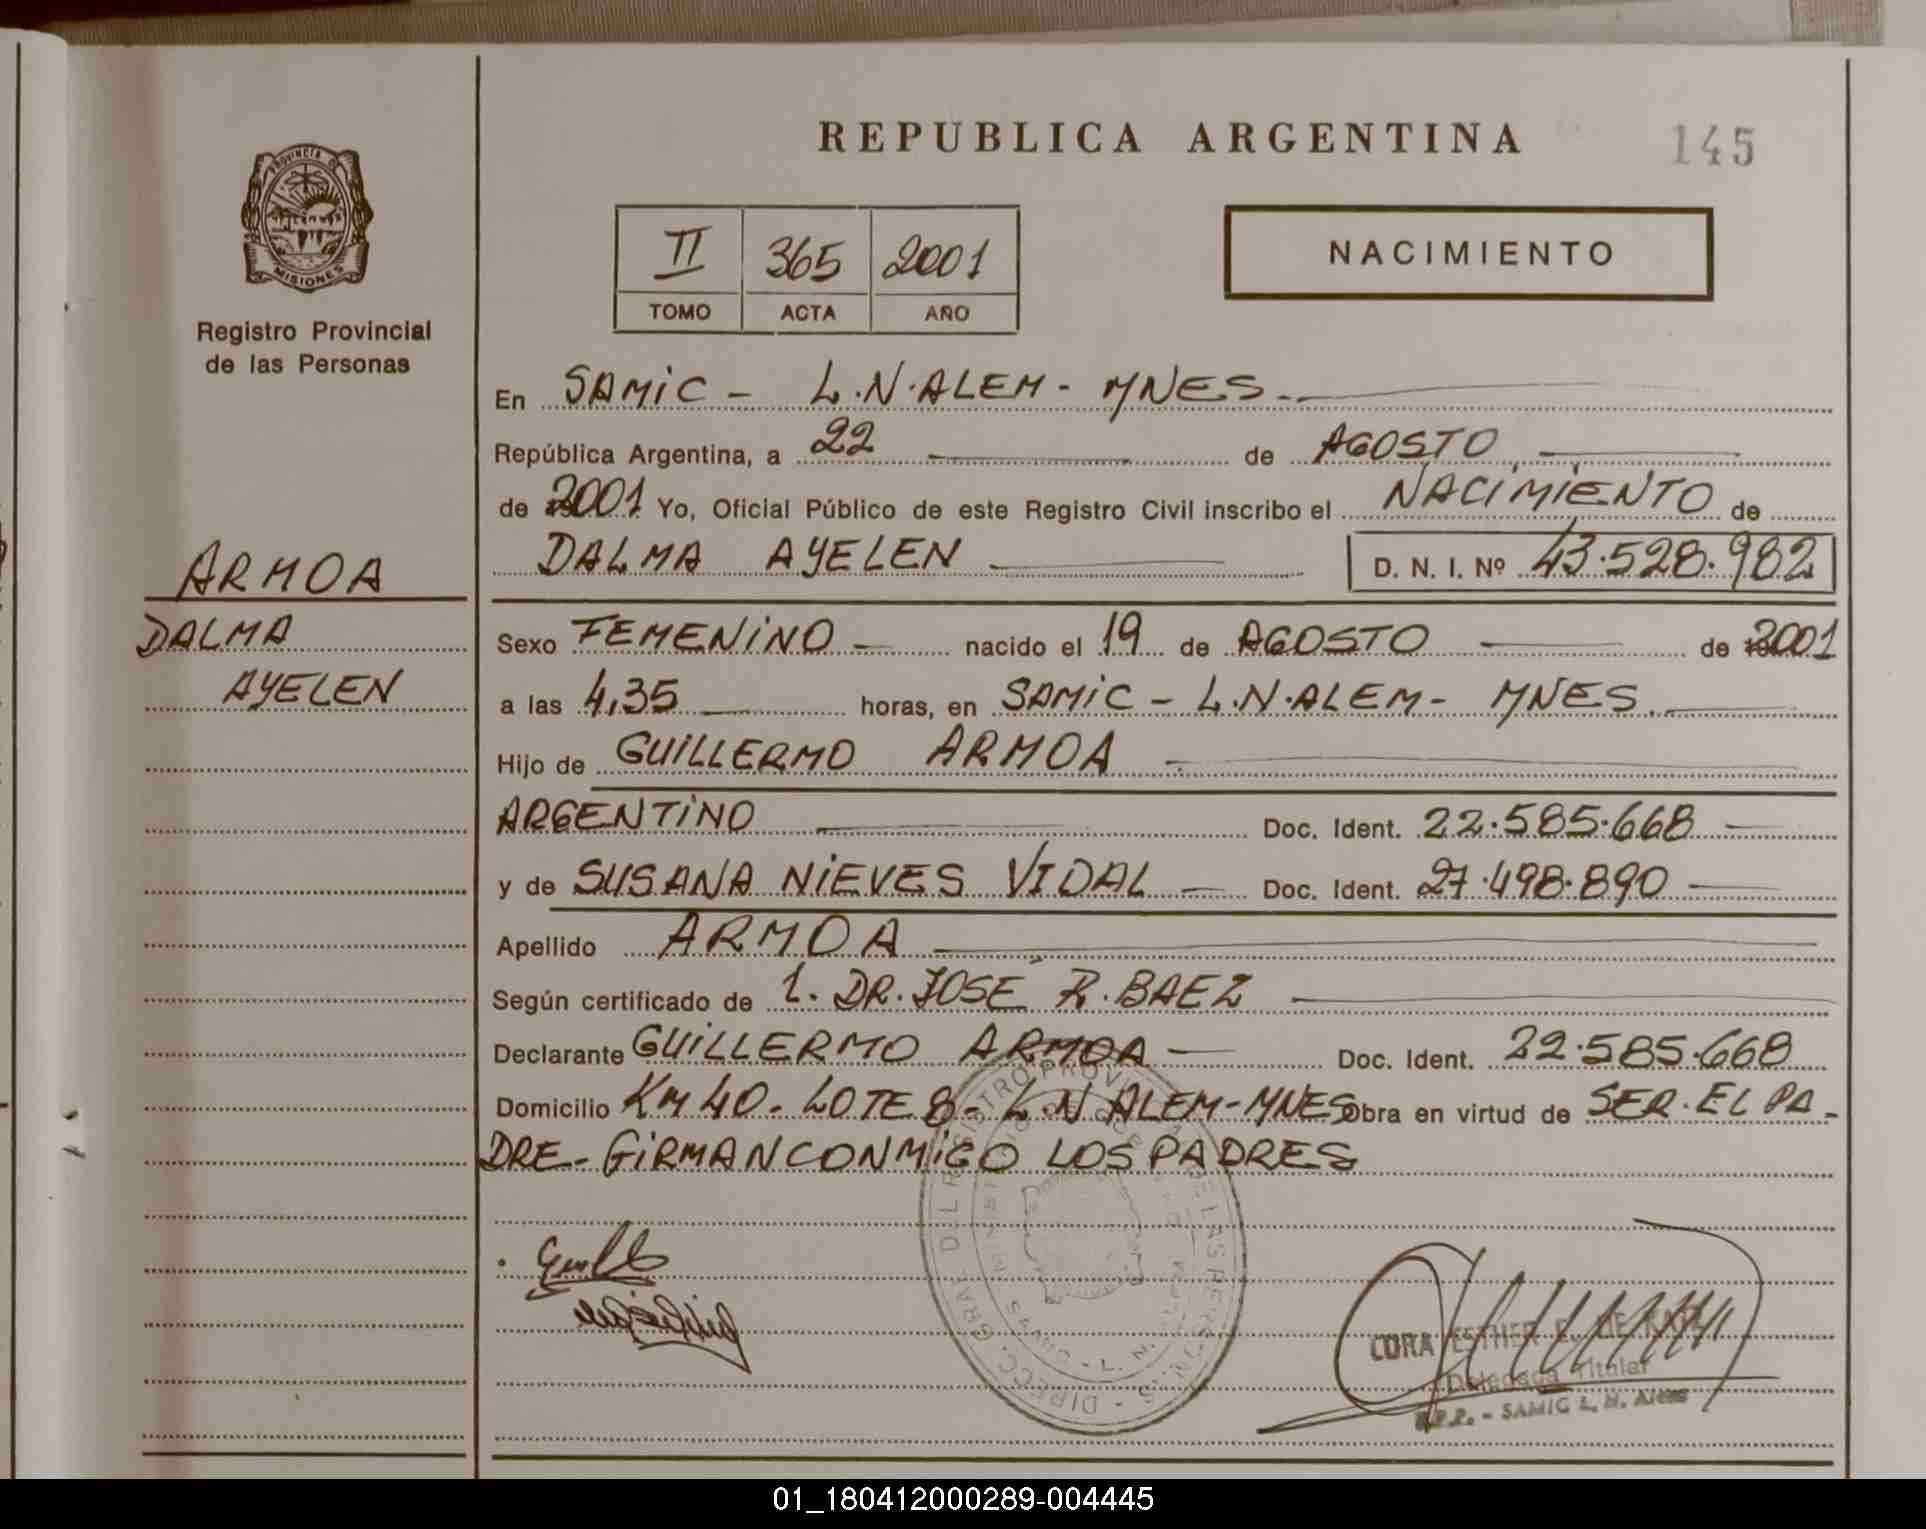 REPUBLICA ARGENTINA
145
PROVINCIA DE
MISIONES
Registro Provincial
de las Personas
II 365 2001
TOMO ACTA AÑO
NACIMIENTO
En SAMIC - L.N.ALEM - MNES.
República Argentina, a 22 de AGOSTO
de 2001 Yo, Oficial Público de este Registro Civil inscribo el NACIMIENTO de
DALMA AYELEN D. N. I. Nº 43.528.982
ARMOA
DALMA
AYELEN
Sexo FEMENINO nacido el 19 de AGOSTO de 2001
a las 4,35 horas, en SAMIC - L.N.ALEM - MNES.
Hijo de GUILLERMO ARMOA
ARGENTINO Doc. Ident. 22.585.668
y de SUSANA NIEVES VIDAL Doc. Ident. 27.498.890
Apellido ARMOA
Según certificado de 1. DR. JOSÉ R. BAEZ
Declarante GUILLERMO ARMOA Doc. Ident. 22.585.668
Domicilio KM 40 - LOTE 8 - L.N ALEM - MNES Obra en virtud de SER. EL PA-
DRE - FIRMAN CONMIGO LOS PADRES
CORA ESTHER
Delegada Titular
R.P.P. - SAMIC L. N. Alem
01_180412000289-004445